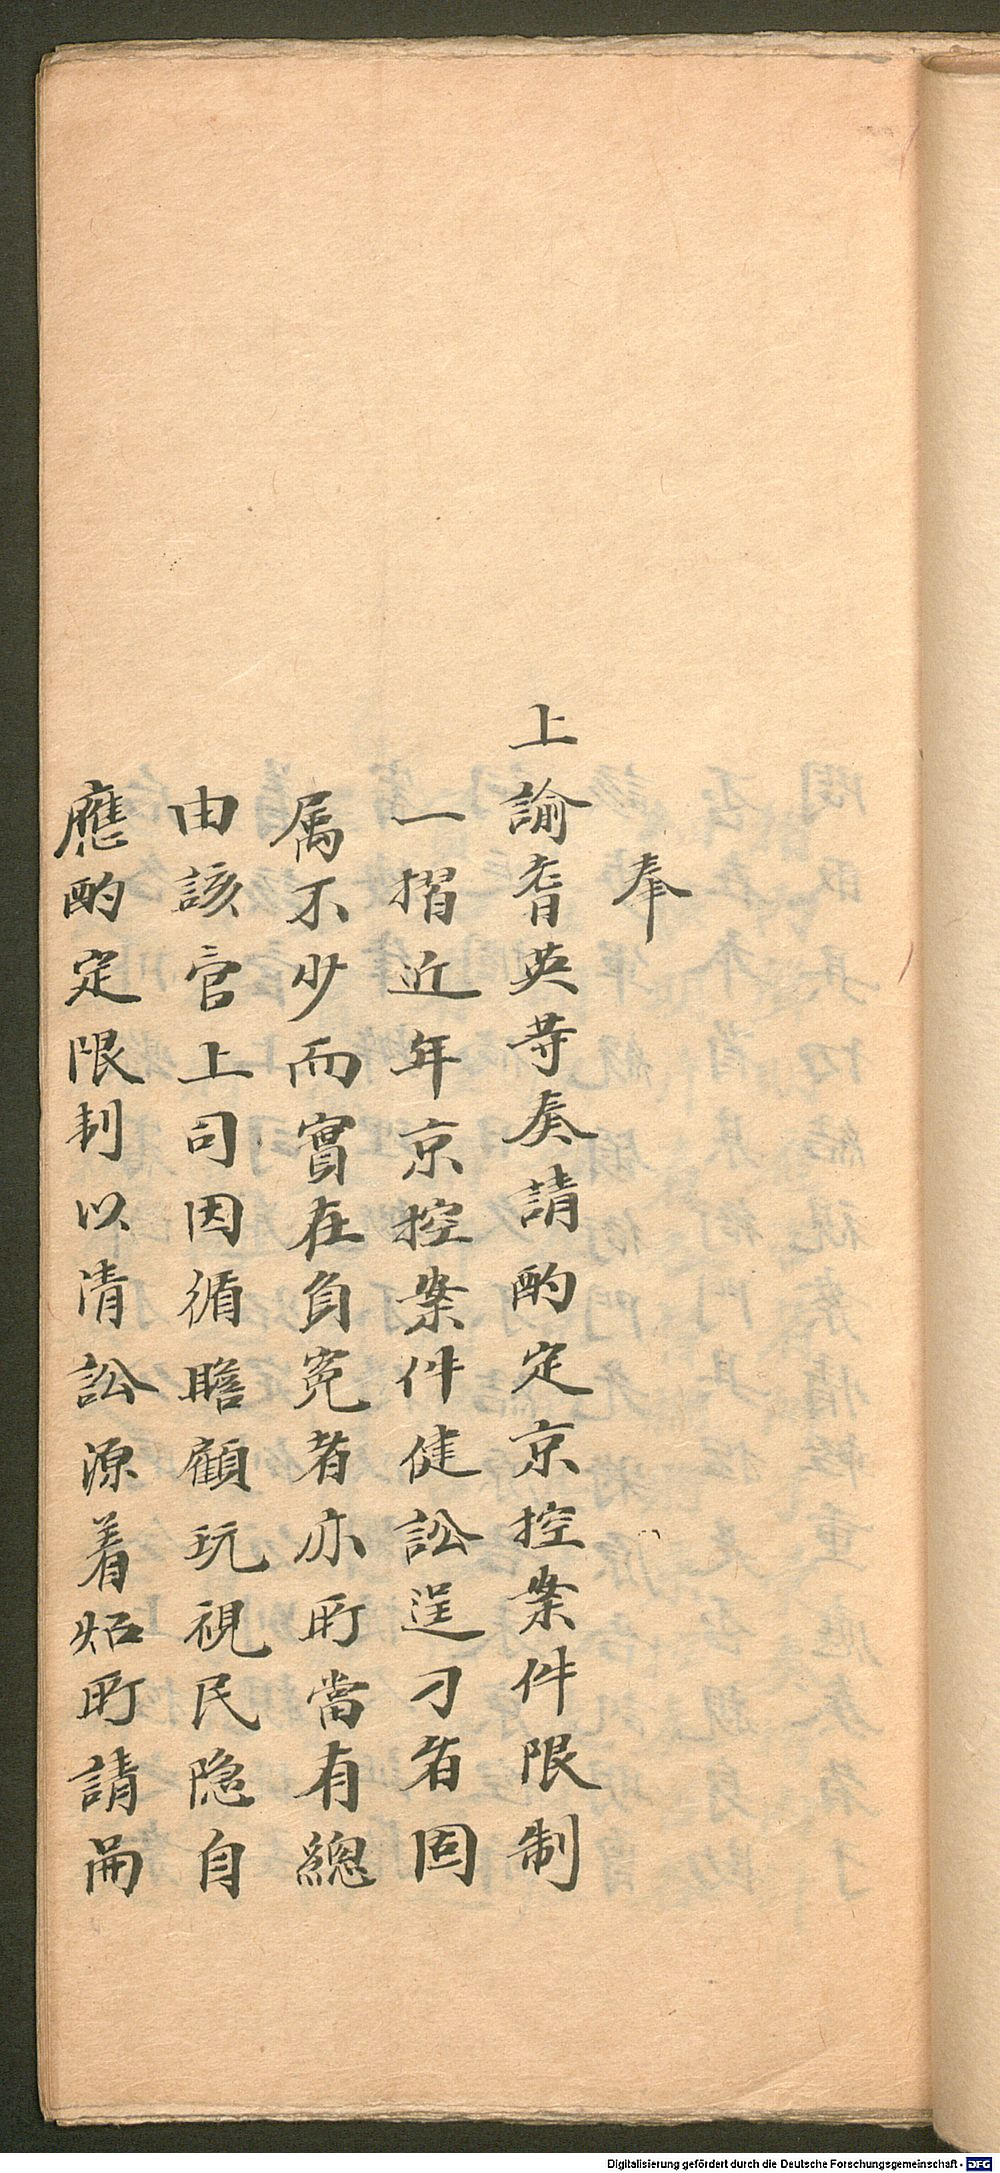 奉
上諭耆英等奏請酌定京控案件限制
一摺近年京控案件健訟逞刁者固
属不少而實在負冤者亦所當有總
由該官上司因循瞻顧玩視民隐自
應酌定限制以清訟源着照所請嗣
Digitalisierung gefördert durch die Deutsche Forschungsgemeinschaft - DFG